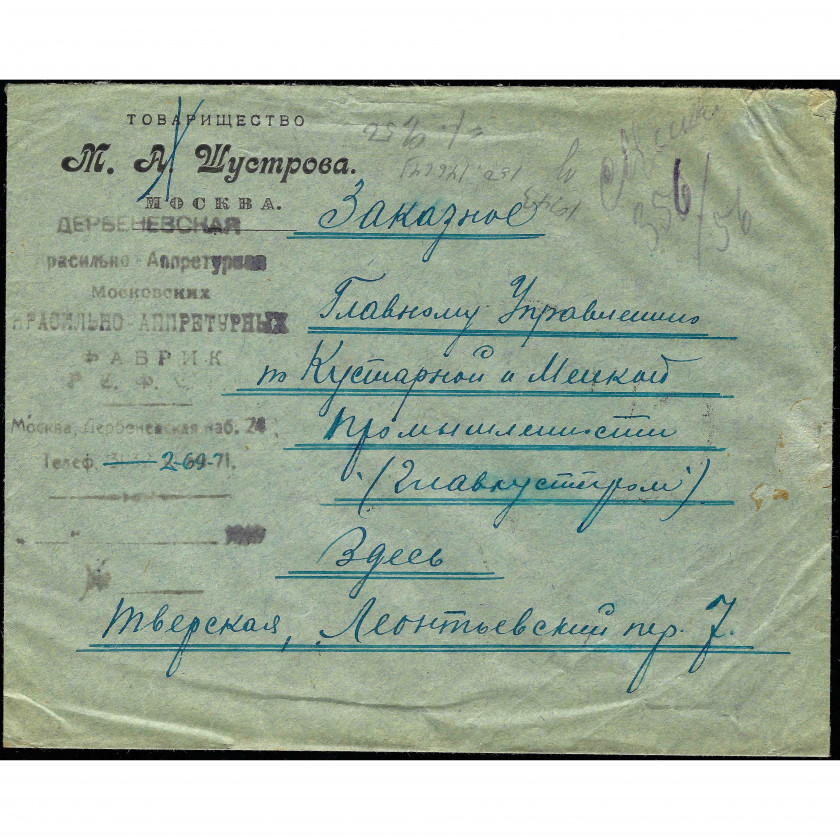 ТОВАРИЩЕСТВО
М. А. Шустрова.
МОСКВА.
ДЕРБЕНЕВСКАЯ
расильно-Аппретурная
Московских
КРАСИЛЬНО-АППРЕТУРНЫХ
ФАБРИК
Р. С. Ф. С.
Москва, Дербеневская наб. 24
Телеф. 2-69-71.
Заказное
Главному Управлению
по Кустарной и Мелкой
Промышленности
(Главкустпром)
Здесь
Тверская, Леонтьевский пер. 7.
356/56